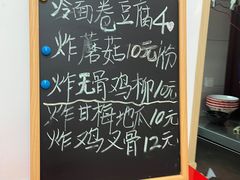 冷面卷豆腐4
炸蘑菇10元/份
炸无骨鸡柳10元
炸甘梅地瓜10元
炸鸡叉骨12元